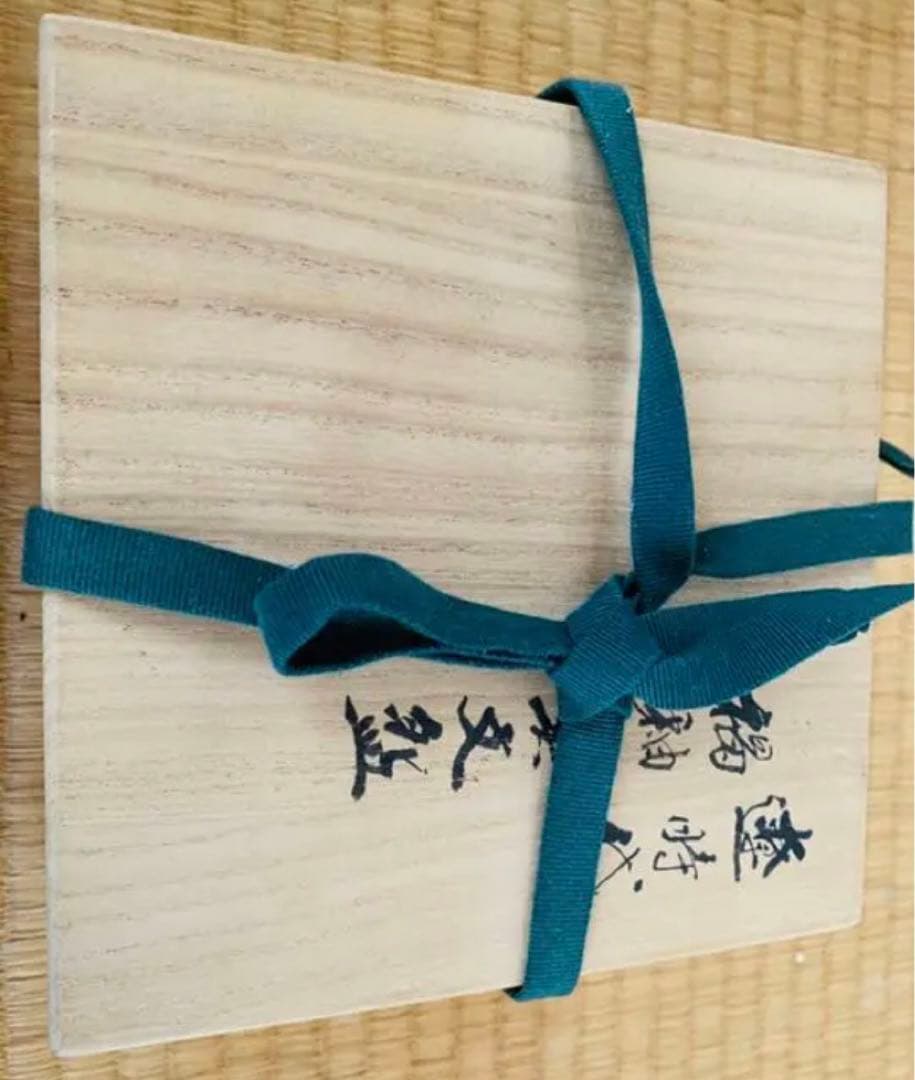 遼時代
褐釉 文盤